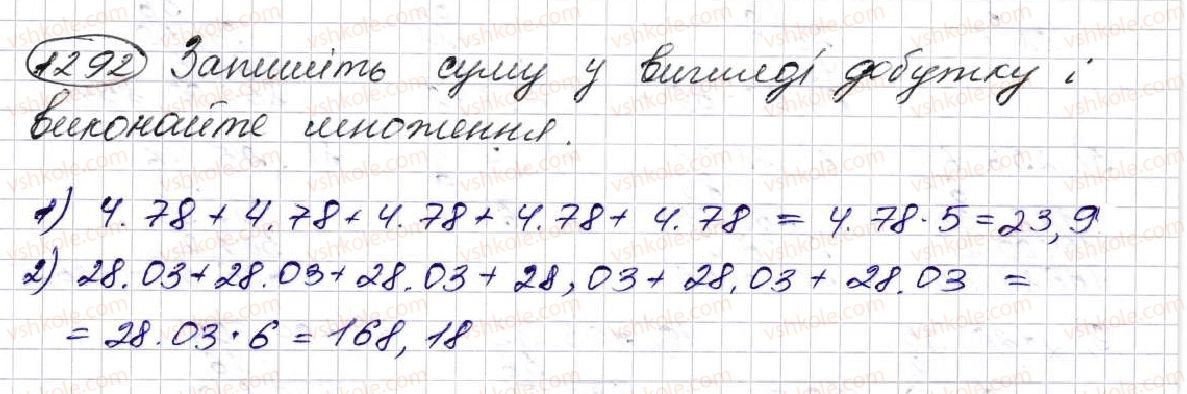 1292 Запишіть суму у вигляді добутку і
виконайте множення.
1) 4.78 + 4.78 + 4.78 + 4.78 + 4.78 = 4.78 · 5 = 23,9
2) 28.03 + 28.03 + 28.03 + 28,03 + 28.03 + 28.03 =
= 28.03 · 6 = 168,18